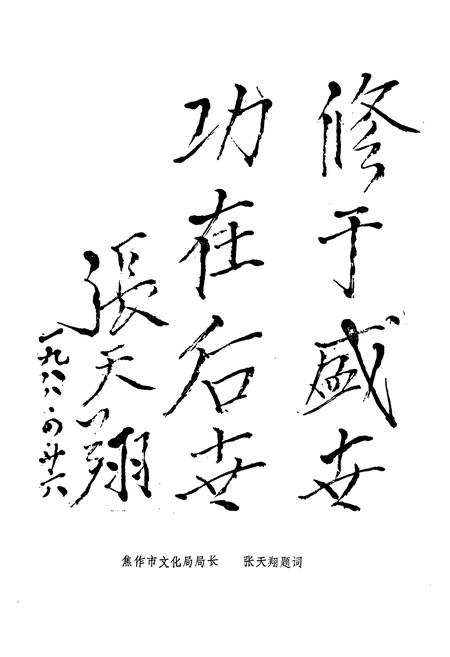 修于盛世
功在后世
張天翔
一九八八·四廿六
焦作市文化局局长 张天翔题词